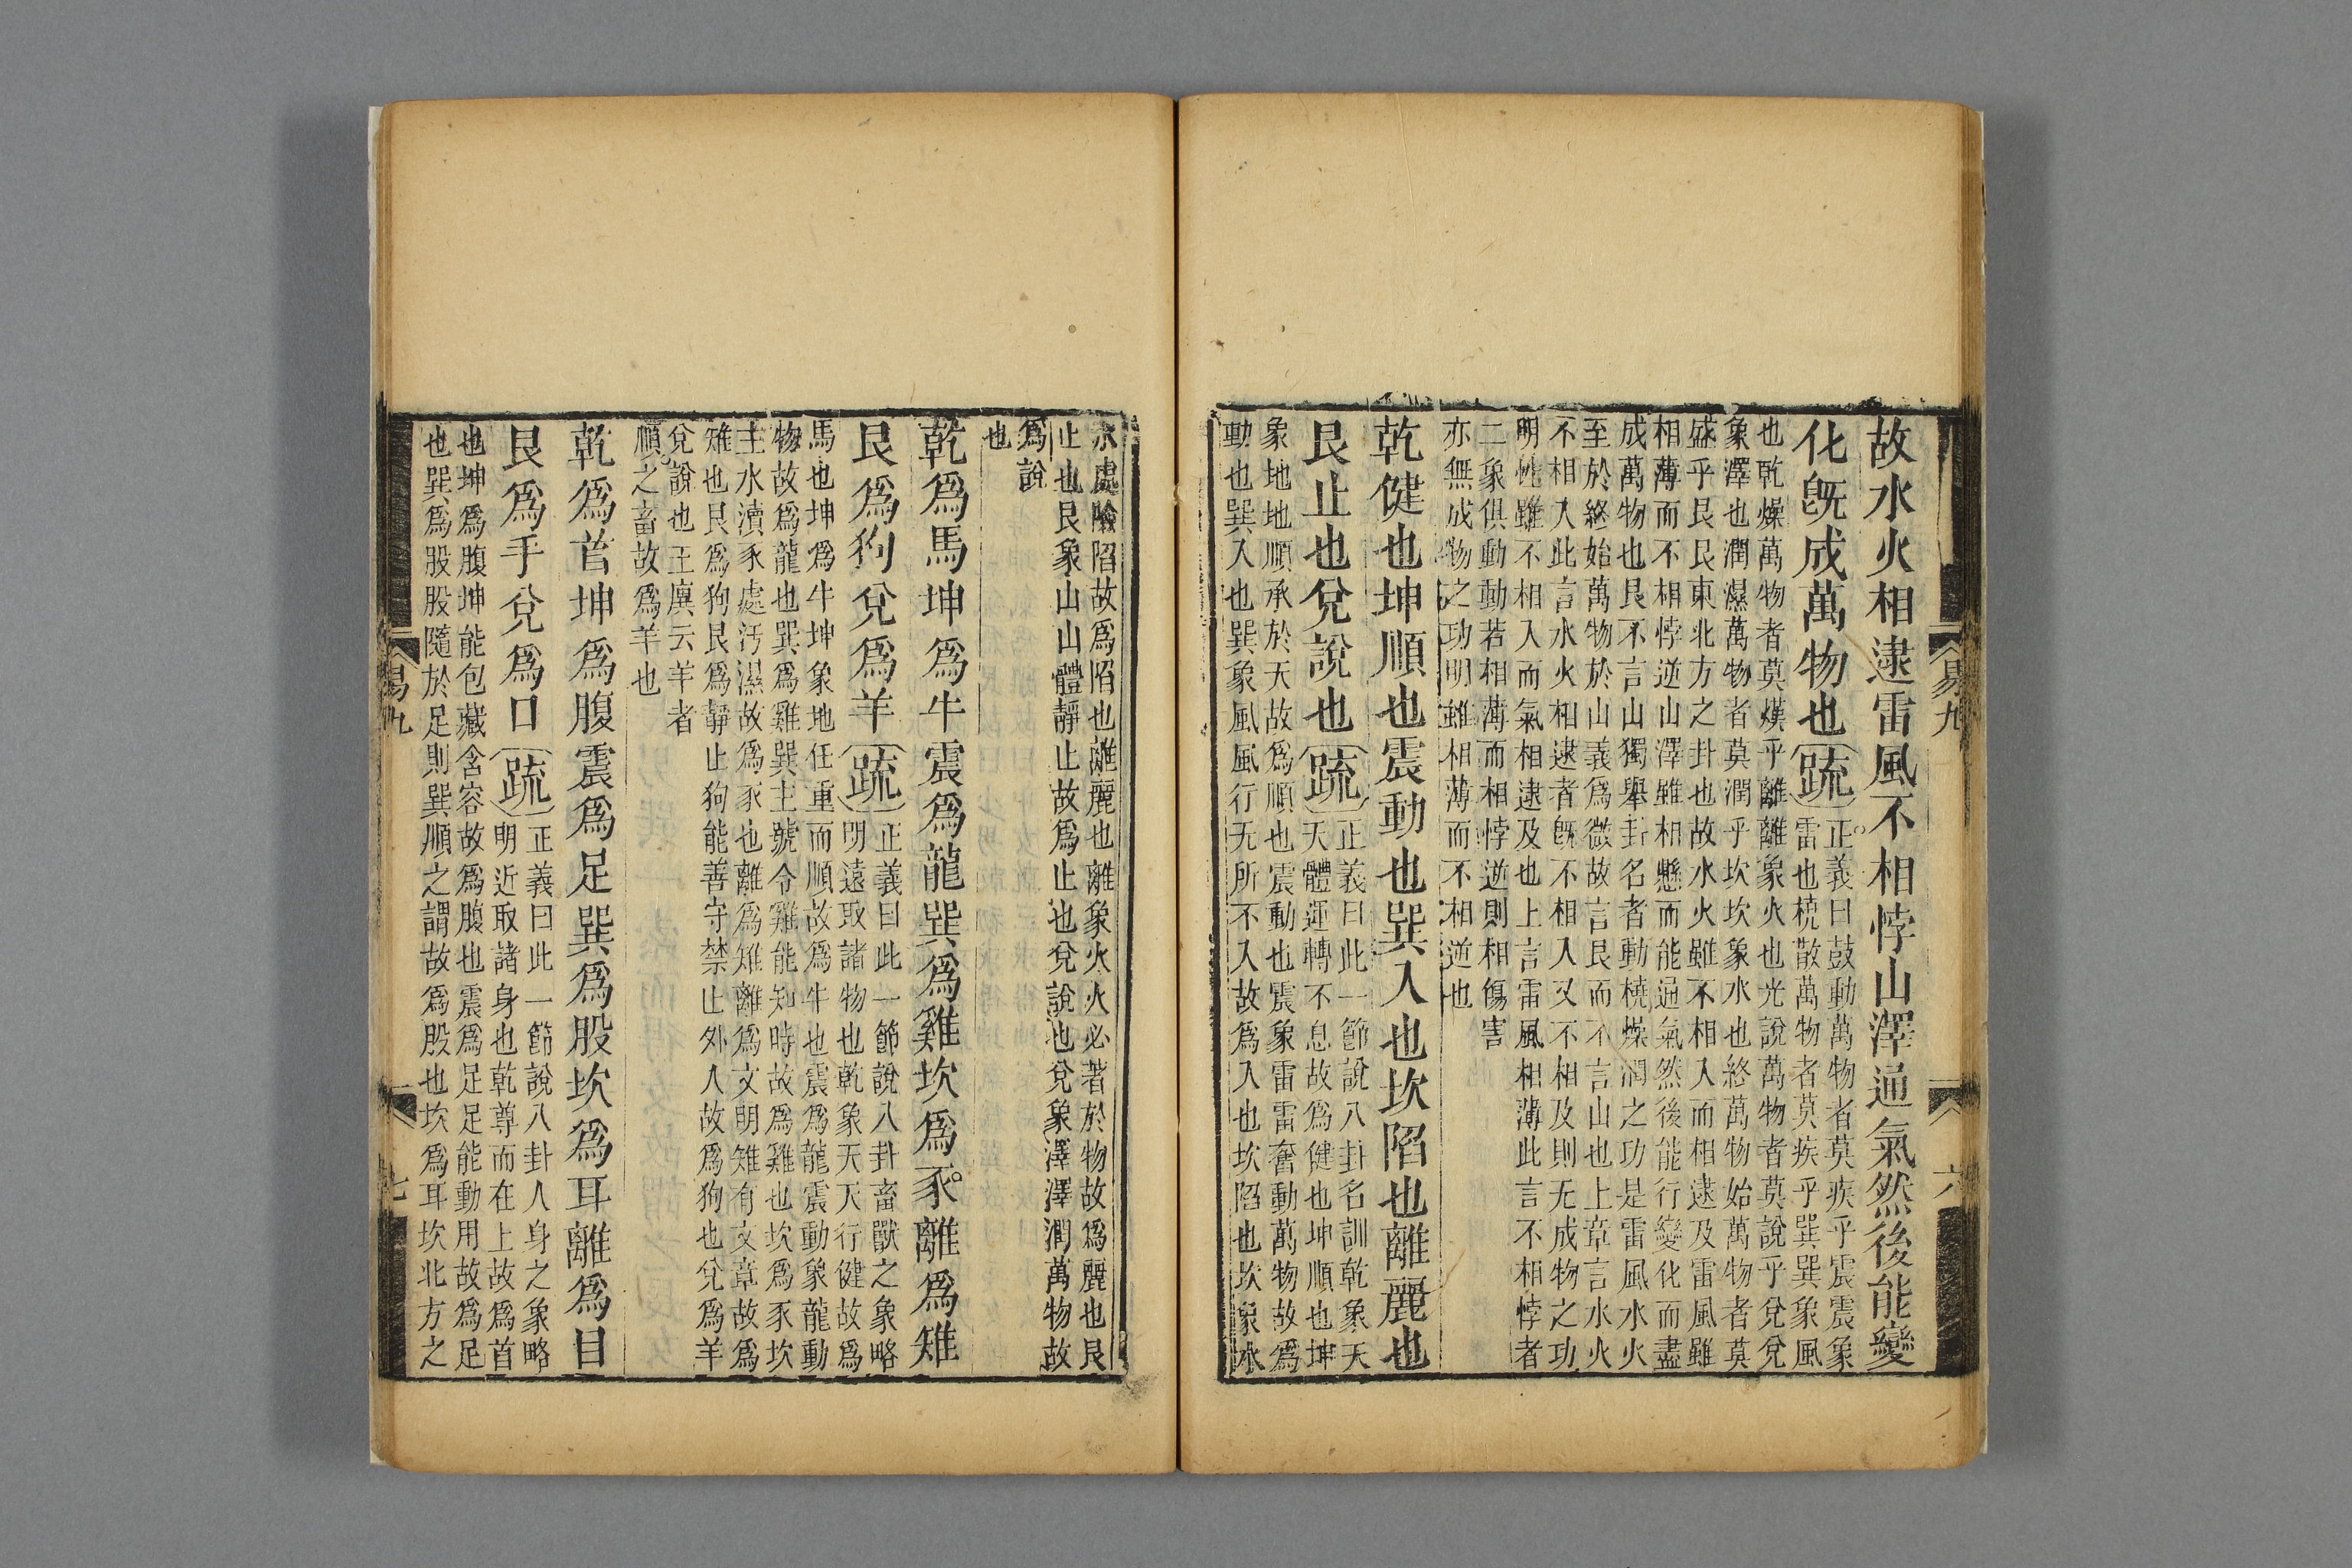 故水火相逮雷風不相悖山澤通氣然後能變
化旣成萬物也疏
正義曰鼓動萬物者莫疾乎震震象
雷也橈散萬物者莫疾乎巽巽象風
也乾燥萬物者莫熯乎離離象火也光說萬物者莫說乎兌兌
象澤也潤濕萬物者莫潤乎坎坎象水也終萬物始萬物者莫
盛乎艮艮東北方之卦也故水火雖不相入而相逮及雷風雖
相薄而不相悖逆山澤雖相懸而能通氣然後能行變化而盡
成萬物也艮不言山獨舉卦名者動橈燥潤之功是雷風水火
至於終始萬物於山義爲微故言艮而不言山也上章言水火
不相入此言水火相逮者旣不相入又不相及則无成物之功
明性雖不相入而氣相逮及也上言雷風相薄此言不相悖者
二象俱動動若相薄而相悖逆則相傷害
亦無成物之功明雖相薄而不相逆也
乾健也坤順也震動也巽入也坎陷也離麗也
艮止也兌說也疏
正義曰此一節說八卦名訓乾象天
天體運轉不息故爲健也坤順也坤
象地地順承於天故爲順也震動也震象雷雷奮動萬物故爲
動也巽入也巽象風風行无所不入故爲入也坎陷也坎象水
易九
六
水處險陷故爲陷也離麗也離象火火必著於物故爲麗也艮
止也艮象山山體靜止故爲止也兌說也兌象澤澤潤萬物故
爲說
也
乾爲馬坤爲牛震爲龍巽爲雞坎爲豕離爲雉
艮爲狗兌爲羊疏
正義曰此一節說八卦畜獸之象略
明遠取諸物也乾象天天行健故爲
馬也坤爲牛坤象地任重而順故爲牛也震爲龍震動象龍動
物故爲龍也巽爲雞巽主號令雞能知時故爲雞也坎爲豕坎
主水瀆豕處汚濕故爲豕也離爲雉離爲文明雉有文章故爲
雉也艮爲狗艮爲靜止狗能善守禁止外人故爲狗也兌爲羊
兌說也王廙云羊者
順之畜故爲羊也
乾爲首坤爲腹震爲足巽爲股坎爲耳離爲目
艮爲手兌爲口疏
正義曰此一節說八卦人身之象略
明近取諸身也乾尊而在上故爲首
也坤爲腹坤能包藏含容故爲腹也震爲足足能動用故爲足
也巽爲股股隨於足則巽順之謂故爲股也坎爲耳坎北方之
易九
七